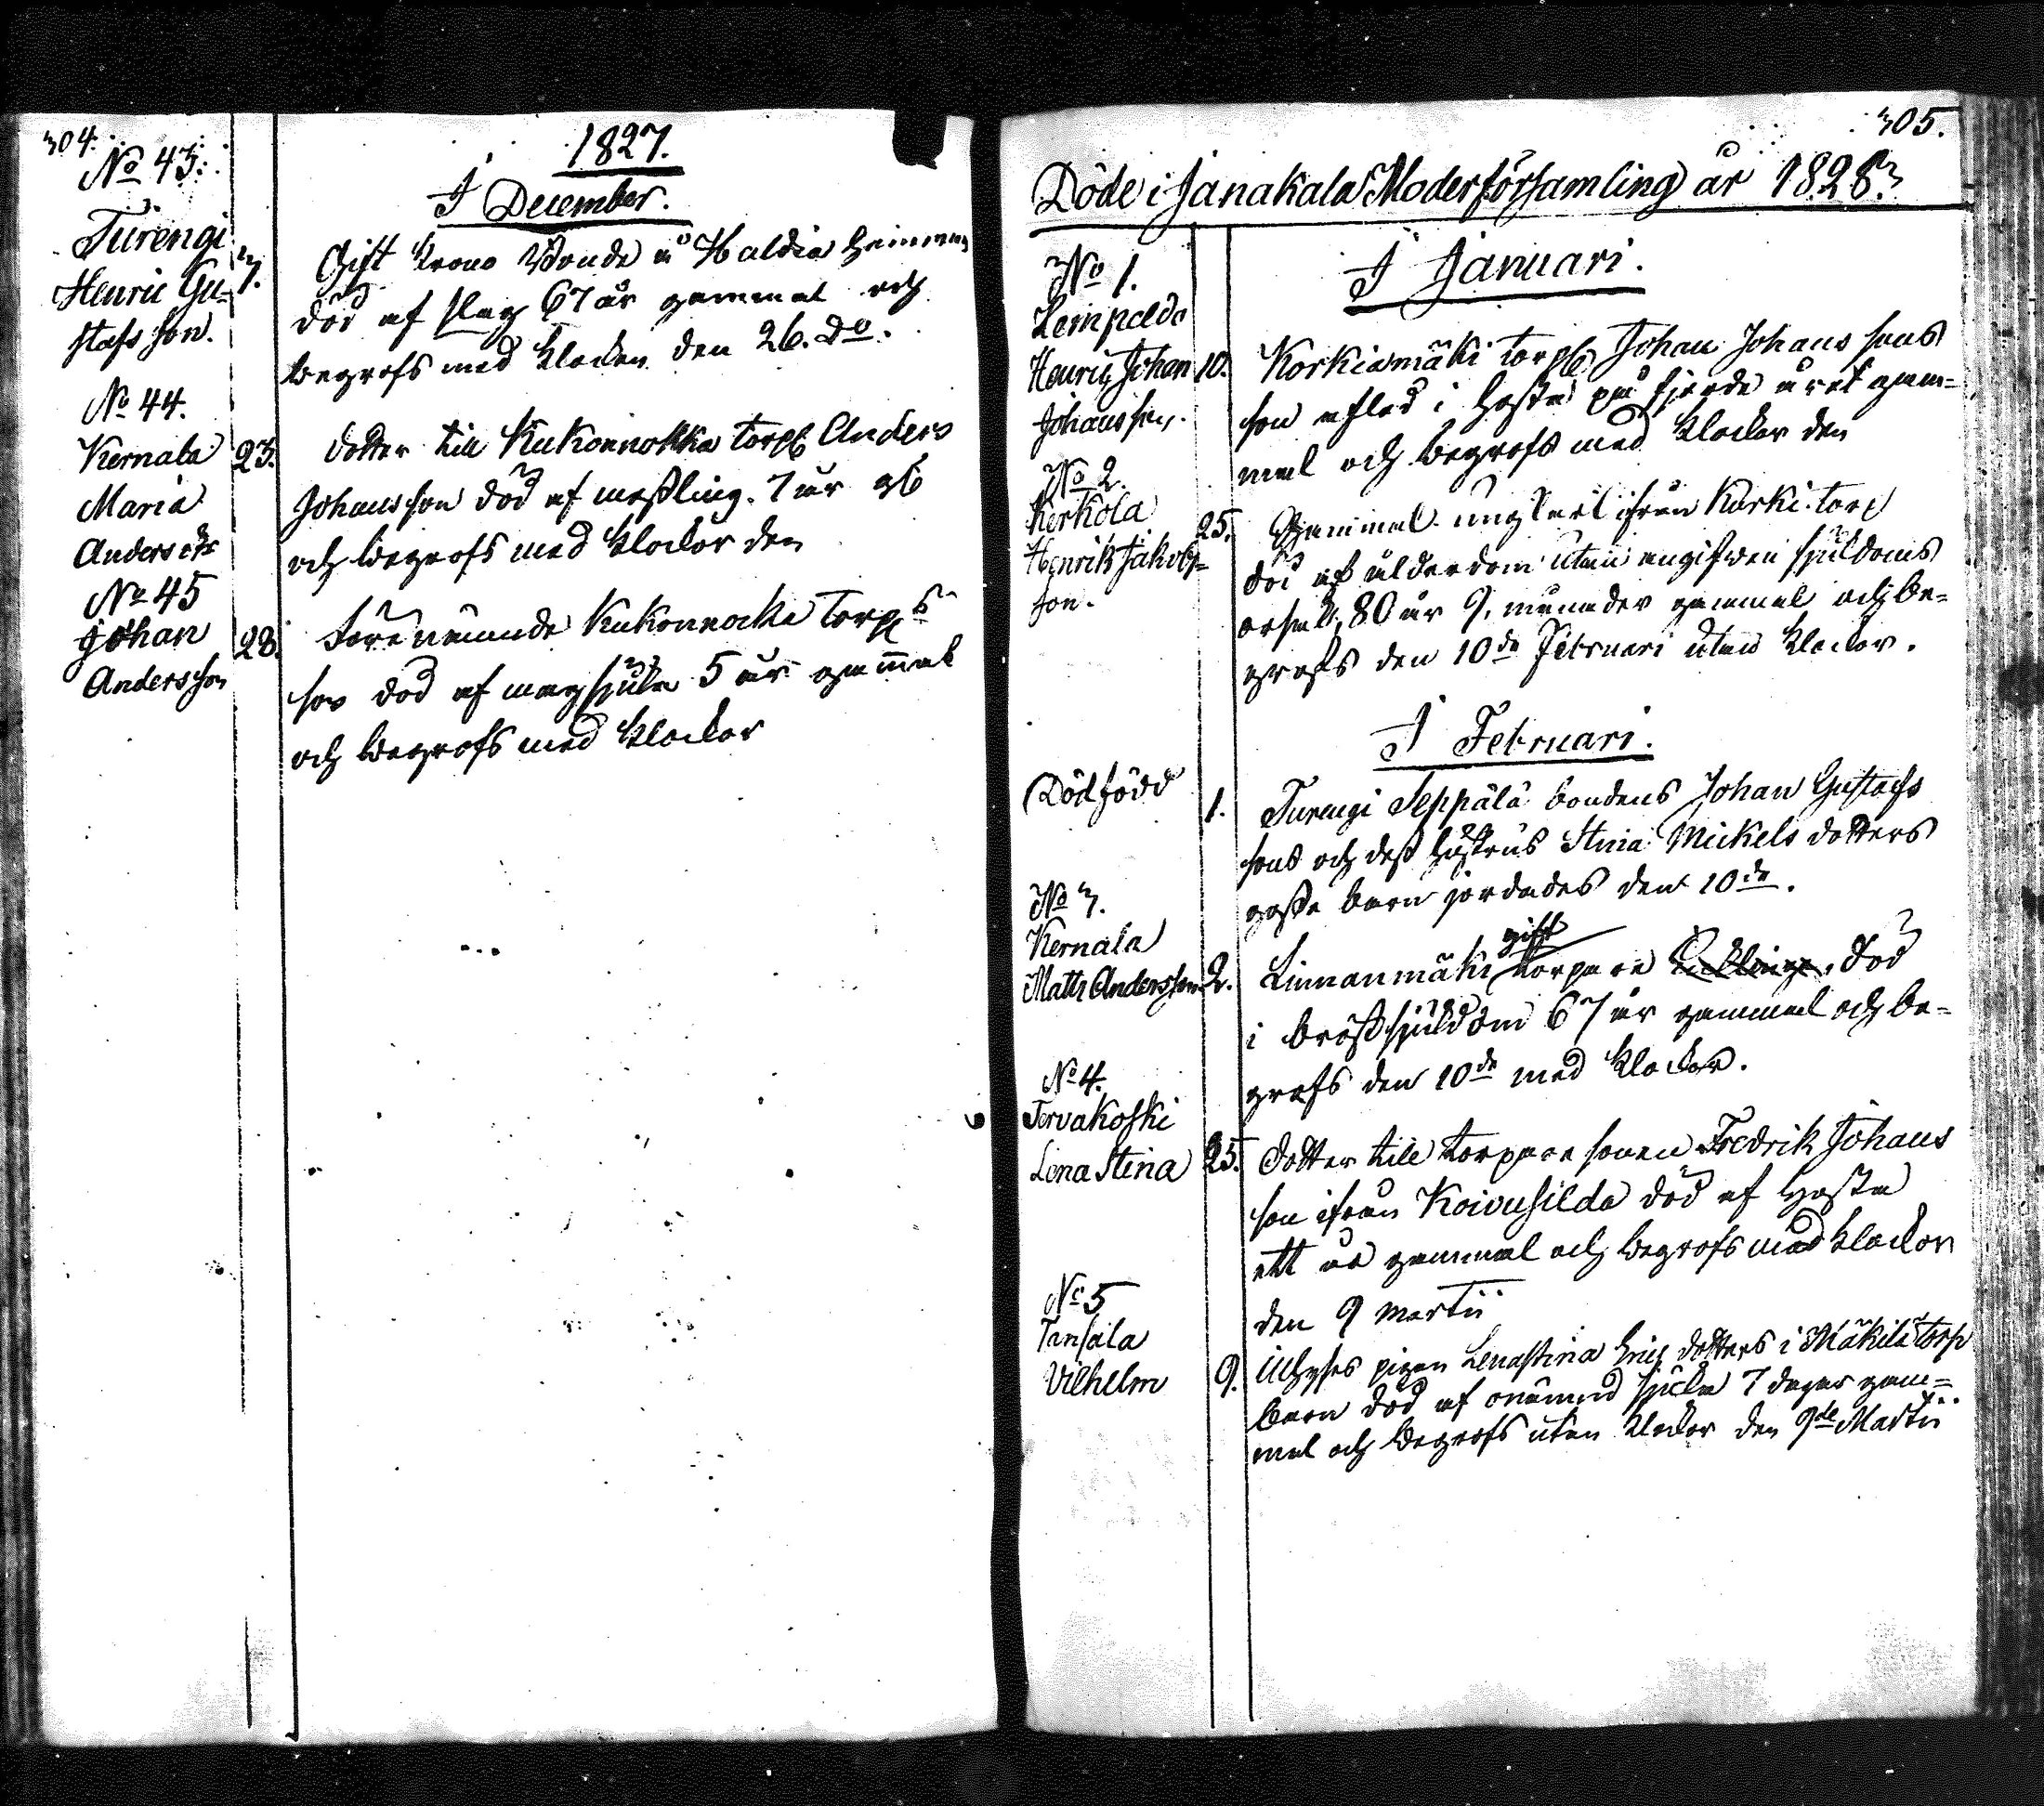 304.
No 43.
1827.
I December.
Turengi
Henric Gu=
stafs son.
7.
Gift Krono Bonde å Haldia Heimman
död af slag 67 år gammal och
begrofs med klockor den 26. Do.
No 44.
Kernala
Maria
Anders dr
23.
dotter till Kukonnokka torp Anders
Johansson död af meßling 7 år
och begrofs med klockor den
No 45
Johan
Andersson
28.
Förenämnde Kukonnocka torp
son död af magsjuka 5 år gammal
och begrofs med klockor
305.
Döde i Janakala Moderförsamling år 1828
I Januari.
No 1.
Leinpelda
Henric Johan
Johansson.
10.
Korkiamäki torp Johan Johans sons
son afled i hosta på fjerde året gam=
mal och begrofs med klockor den
No 2.
Kerkola
Henrik Jakobs=
son.
25.
Gammal ungkarl ifrån Korki torp
död af ålderdom utan angifven sjukdoms
orsak, 80 år 9 månader gammal och be=
grofs den 10de Februari utan klockor.
I Februari.
Dödfödd
1.
Turengi Seppälä bondens Johan Gustafs
sons och deß hustrus Stina Mickels dotters
goße barn jordades den 10de.
No 3.
Kernala
Matts Andersson
2.
gift
Linnanmäki torpare död
i bröstsjukdom 67 år gammal och be=
grofs den 10de med klockor.
No 4.
Tervakoski
Lena Stina
25.
dotter till torpare sonen Fredrik Johans
son ifrån Koivusilda död af hosta
ett år gammal och begrofs med klockor
den 9 Martii
No 5
Tansala
Vilhelm
9.
pigan Lenastina Eric dotters i Mäkilä torp
barn död af onämnd sjuka 7 dagar gam=
mal och begrofs utan klockor den 9de Martii